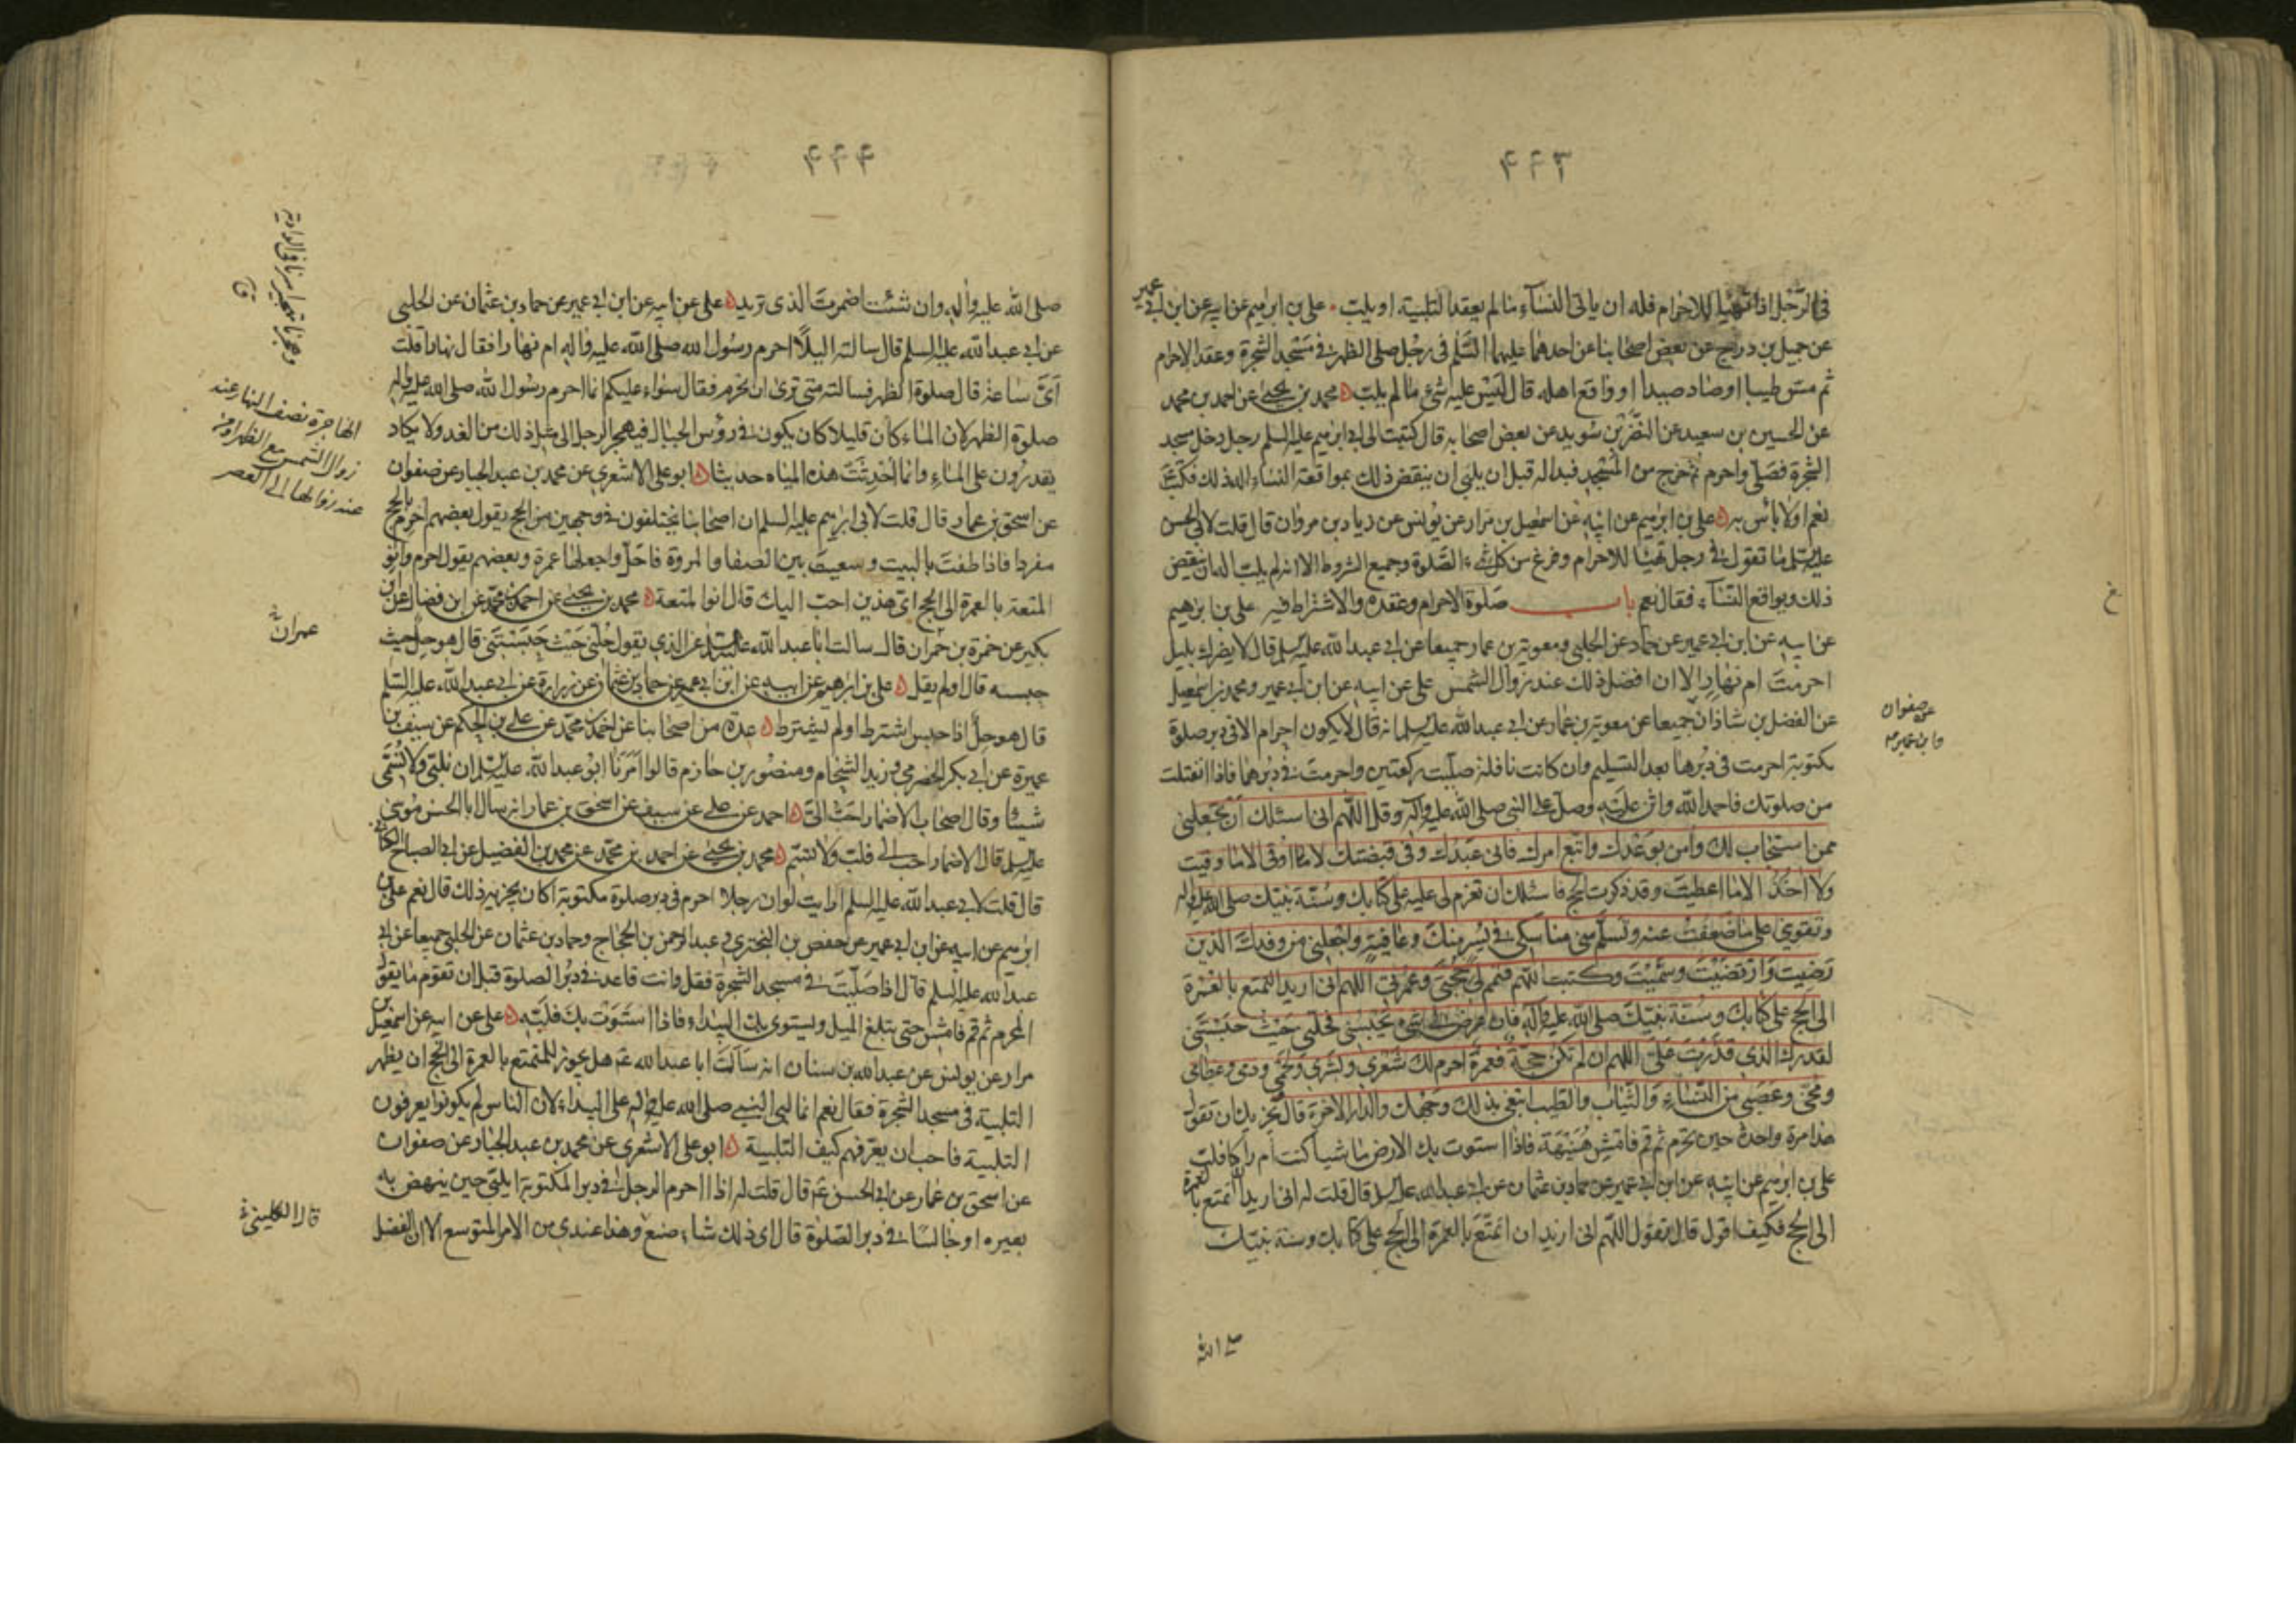 ۴۴۳
فی الرّجل اذا تهیّأ للاحرام فله ان یاتی النسآء مالم یعقد التلبیة او یلبّ علی بن ابرهیم عن ابیه عن ابن ابی عمیر
عن جمیل بن دراج عن بعض اصحابنا عن احدهما علیهما السّلم فی رجل صلی الظهر فی مسجد الشجرة وعقد الاحرام
ثم مسّ طیبا او صاد صیدا او واقع اهله قال لَیْسَ علیه شیء مالم یلبّ محمد بن یحیی عن احمد بن محمد
عن الحسین بن سعید عن النضر بن سُوید عن بعض اصحابه قال کتبت الی ابی ابرهیم علیه السلم رجل دخل مسجد
الشجرة فصلّی واحرم ثم خرج من المسْجد فبدا له قبل ان یلبّی ان ینقض ذلک بمواقعة النسآء اله ذلک فکتبَ
نعم او لا باْس به علی بن ابرهیم عن ابیه عن اسمعیل بن مرار عن یونس عن زیاد بن مروان قال قلت لابی الحسن
علیه السلم ما تقول فی رجل تهیّا للاحرام وفرغ من کل شیء الصّلوة وجمیع الشروط الا انه لم یلبّ اله ان ینقض
ذلک ویواقع النسآء فقال نعم باب صلوة الاحرام وعقده والاشتراط فیه علی بن ابرهیم
عن ابیه عن ابن ابی عمیر عن حماد عن الحلبی ومعویة بن عمار جمیعا عن ابی عبد الله علیه السلم قال لا یضرک بلیل
احرمتَ ام نهار الا ان افضل ذلک عند زوال الشمس علی عن ابیه عن ابن ابی عمیر ومحمد بن اسمعیل
عن الفضل بن شاذان جمیعا عن معویة بن عمار عن ابی عبد الله علیه السلم انه قال لا یکون احرام الا فی دبر صلوة
مکتوبة احرمت فی دبرها بعد التسلیم وان کانت نافلة صلّیت رکعتین واحرمتَ فی دبرهما فاذا انفتلت
من صلوتک فاحمد الله واثن علیه وصلّ علی النبی صلی الله علیه وآله وقل اللّهم انی اسئلک اَنْ تجعلنی
ممن استجاب لک وآمن بوعْدک واتبع امرک فانی عَبْدک وفی قبضتک لا اوقی الا ما وقیت
ولا اخذ الا ما اعطیتَ وقد ذکرت الحج فاسئلک ان تعزم لی علیه علی کتابک وسُنّة نبیّک صلی الله علیه واله
وتقوینی علی ما ضعفتُ عنه وتسلّم منی مناسکی فی یُسر منک وعافیة واجعلنی من وفدک الذین
رَضیتَ وَارْتضیْتَ وسمّیتَ وکتبت اللّهم فتمم لی حجّتی وعمرتی اللّهم انی ارید التمتع بالعُمْرة
الی الحج علی کتابک وسُنّة نبیّک صلی الله علیه وآله فان عرض لی شیء یَحْبسنی فحلّنی حَیْث حبَسْتَنی
لقدرک الذی قدّرْتَ عَلیَّ اللّهم ان لم تکن حجّةً فعمرة احرم لک شعْری وبَشَری ولَحْمی ودمی وعظامی
ومخّی وعَصَبی من النّسَاءِ وَالثیاب والطیب ابتغی بذلک وَجْهک والدار الاخرة قال یجزیک ان تقول
هذا مرة واحدة حین تحرم ثم قم فامْشِ هُنَیْهَةً فاذا استوت بک الارض ماشیا کنت ام راکبا فلبّ
علی بن ابرهیم عن ابیه عن ابن ابی عمیر عن حماد بن عثمان عن ابی عبد الله علیه السلم قال قلت له انی ارید التمتع بالعمرة
الی الحج فکیف اقول قال تقول اللّهم انی ارید ان اتمتّعَ بالعمرة الی الحج علی کتابک وسنة نبیّک
عن صفوان
وابن عمیر
صلی الله
۴۴۴
صلی الله علیه واله وان شئت اضمرت الذی ترید علی عن ابیه عن ابن ابی عمیر عن حماد بن عثمان عن الحلبی
عن ابی عبد الله علیه السلم قال سالته الیلاً احرم رسول الله صلی الله علیه واله ام نهارا فقال نهارا قلت
ایّ ساعة قال صلوة الظهر فسالته متی تری ان نحرم فقال سواء علیکم انما احرم رسول الله صلی الله علیه واله
صلوة الظهر لان الماء کان قلیلا کان یکون فی رؤس الجبال فیهجر الرجل الی مثل ذلک من الغد ولا یکاد
یقدرُون علی الماءِ وانما اُحْدِثَتْ هذه المیاه حدیثا ابو علی الاشعری عن محمد بن عبد الجبار عن صفوان
عن اسحق بن عمار قال قلت لابی ابرهیم علیه السلم ان اصحابنا یختلفون فی وجهین من الحج یقول بعضهم احرم بالحج
مفردا فاذا طفتَ بالبیت وسعیتَ بین الصفا والمروة فاحلّ واجعلها عمرة وبعضهم یقول احرم وانوِ
المتعة بالعمرة الی الحج ایّ هذین احبّ الیک قال انوِ المتعة محمد بن یحیی عن احمد بن محمد عن ابن فضال عن ابن
بکیر عن حمزة بن حمران قال سالت ابا عبد الله علیه السلم عن الذی یقول حلّنی حیْث حَبَسْتَنی قال هو حلّ حیث
حبسه قال اولم یقل علی بن ابرهیم عن ابیه عن ابن ابی عمیر عن حماد بن عثمان عن زرارة عن ابی عبد الله علیه السّلم
قال هو حلّ اذا حبس اشترط او لم یشترط عدة من اصحابنا عن احمد بن محمد عن علی بن الحکم عن سیف بن
عمیرة عن ابی بکر الحضرمی وزید الشحّام ومنصور بن حازم قالوا اَمَرَنا ابو عبد الله علیه السلم ان نلبّی ولا نُسَمّی
شیئا وقال اصحاب الاضمار احبّ الیّ احمد عن علی عن سیف عن اسحق بن عمار انه سال ابا الحسن موسی
علیه السلم قال الاضمار احب الی فلبّ ولا تسمّ محمد بن یحیی عن احمد بن محمد عن محمد بن الفضیل عن ابی الصباح الکنانی
قال قلت لابی عبد الله علیه السلم ارایت لو ان رجلا احرم فی دبر صلوة مکتوبة اکان یجزیه ذلک قال نعم علی بن
ابرهیم عن ابیه عن ابن ابی عمیر عن حفص بن البختری وعبد الرحمن بن الحجاج وحماد بن عثمان عن الحلبی جمیعا عن ابی
عبد الله علیه السلم قال اذا صَلّیتَ فی مسجد الشجرة فقل وانت قاعد فی دبُر الصلوة قبل ان تقوم ما یقول
المحرم ثم قم فامْش حتی تبلغ المیل ویستوی بک البیداء فاذا استَوَتْ بک فلَبّه علی عن ابیه عن اسمعیل بن
مرار عن یونس عن عبد الله بن سنان انه سَاَلتُ ابا عبد الله ع هل یجوز للمتمتع بالعمرة الی الحج ان یظهر
التلبیة فی مسجد الشجرة فقال نعم انما لبی النبی صلی الله علیه واله علی البیداء لان الناس لم یکونوا یعرفون
التلبیة فاحب ان یعرّفهم کیف التلبیة ابو علی الاشعری عن محمد بن عبد الجبار عن صفوان
عن اسحق بن عمار عن ابی الحسن ع قال قلت له اذا احرم الرجل فی دبر المکتوبة ایلبّی حین ینهض به
بعیره او جالسًا فی دبر الصّلوة قال ای ذلک شاء صنع وهذا عندی من الامر المتوسع الا ان الفضل
الهاجرة نصف النهار عند
زوال الشمس مع الظهر او من
عند زوالها الی العصر
عمران
قال الکلینی